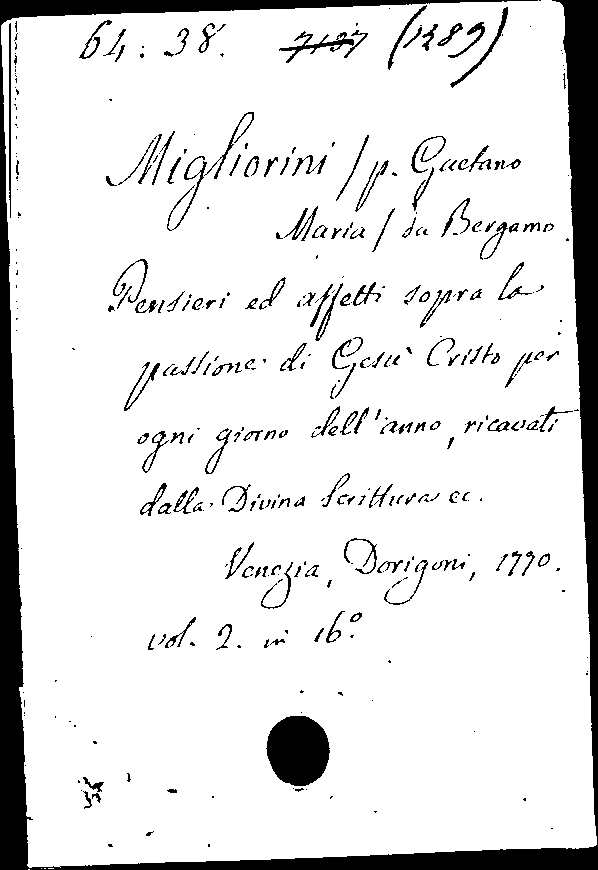 64. 38. 7137 (1289)
Migliorini / p. Gaetano
Maria / da Bergamo.
Pensieri ed affetti sopra la
passione di Gesù Cristo per
ogni giorno dell'anno, ricavati
dalla Divina Scrittura ec.
Venezia, Dorigoni, 1770.
vol. 2. in 16º.